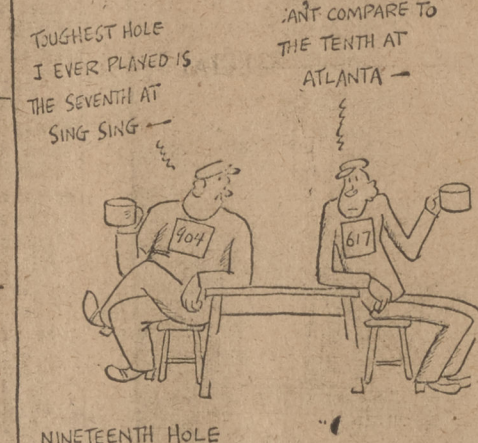 TOUGHEST HOLE
I EVER PLAYED IS
THE SEVENTH AT
SING SING —
'AN'T COMPARE TO
THE TENTH AT
ATLANTA —
904
617
NINETEENTH HOLE